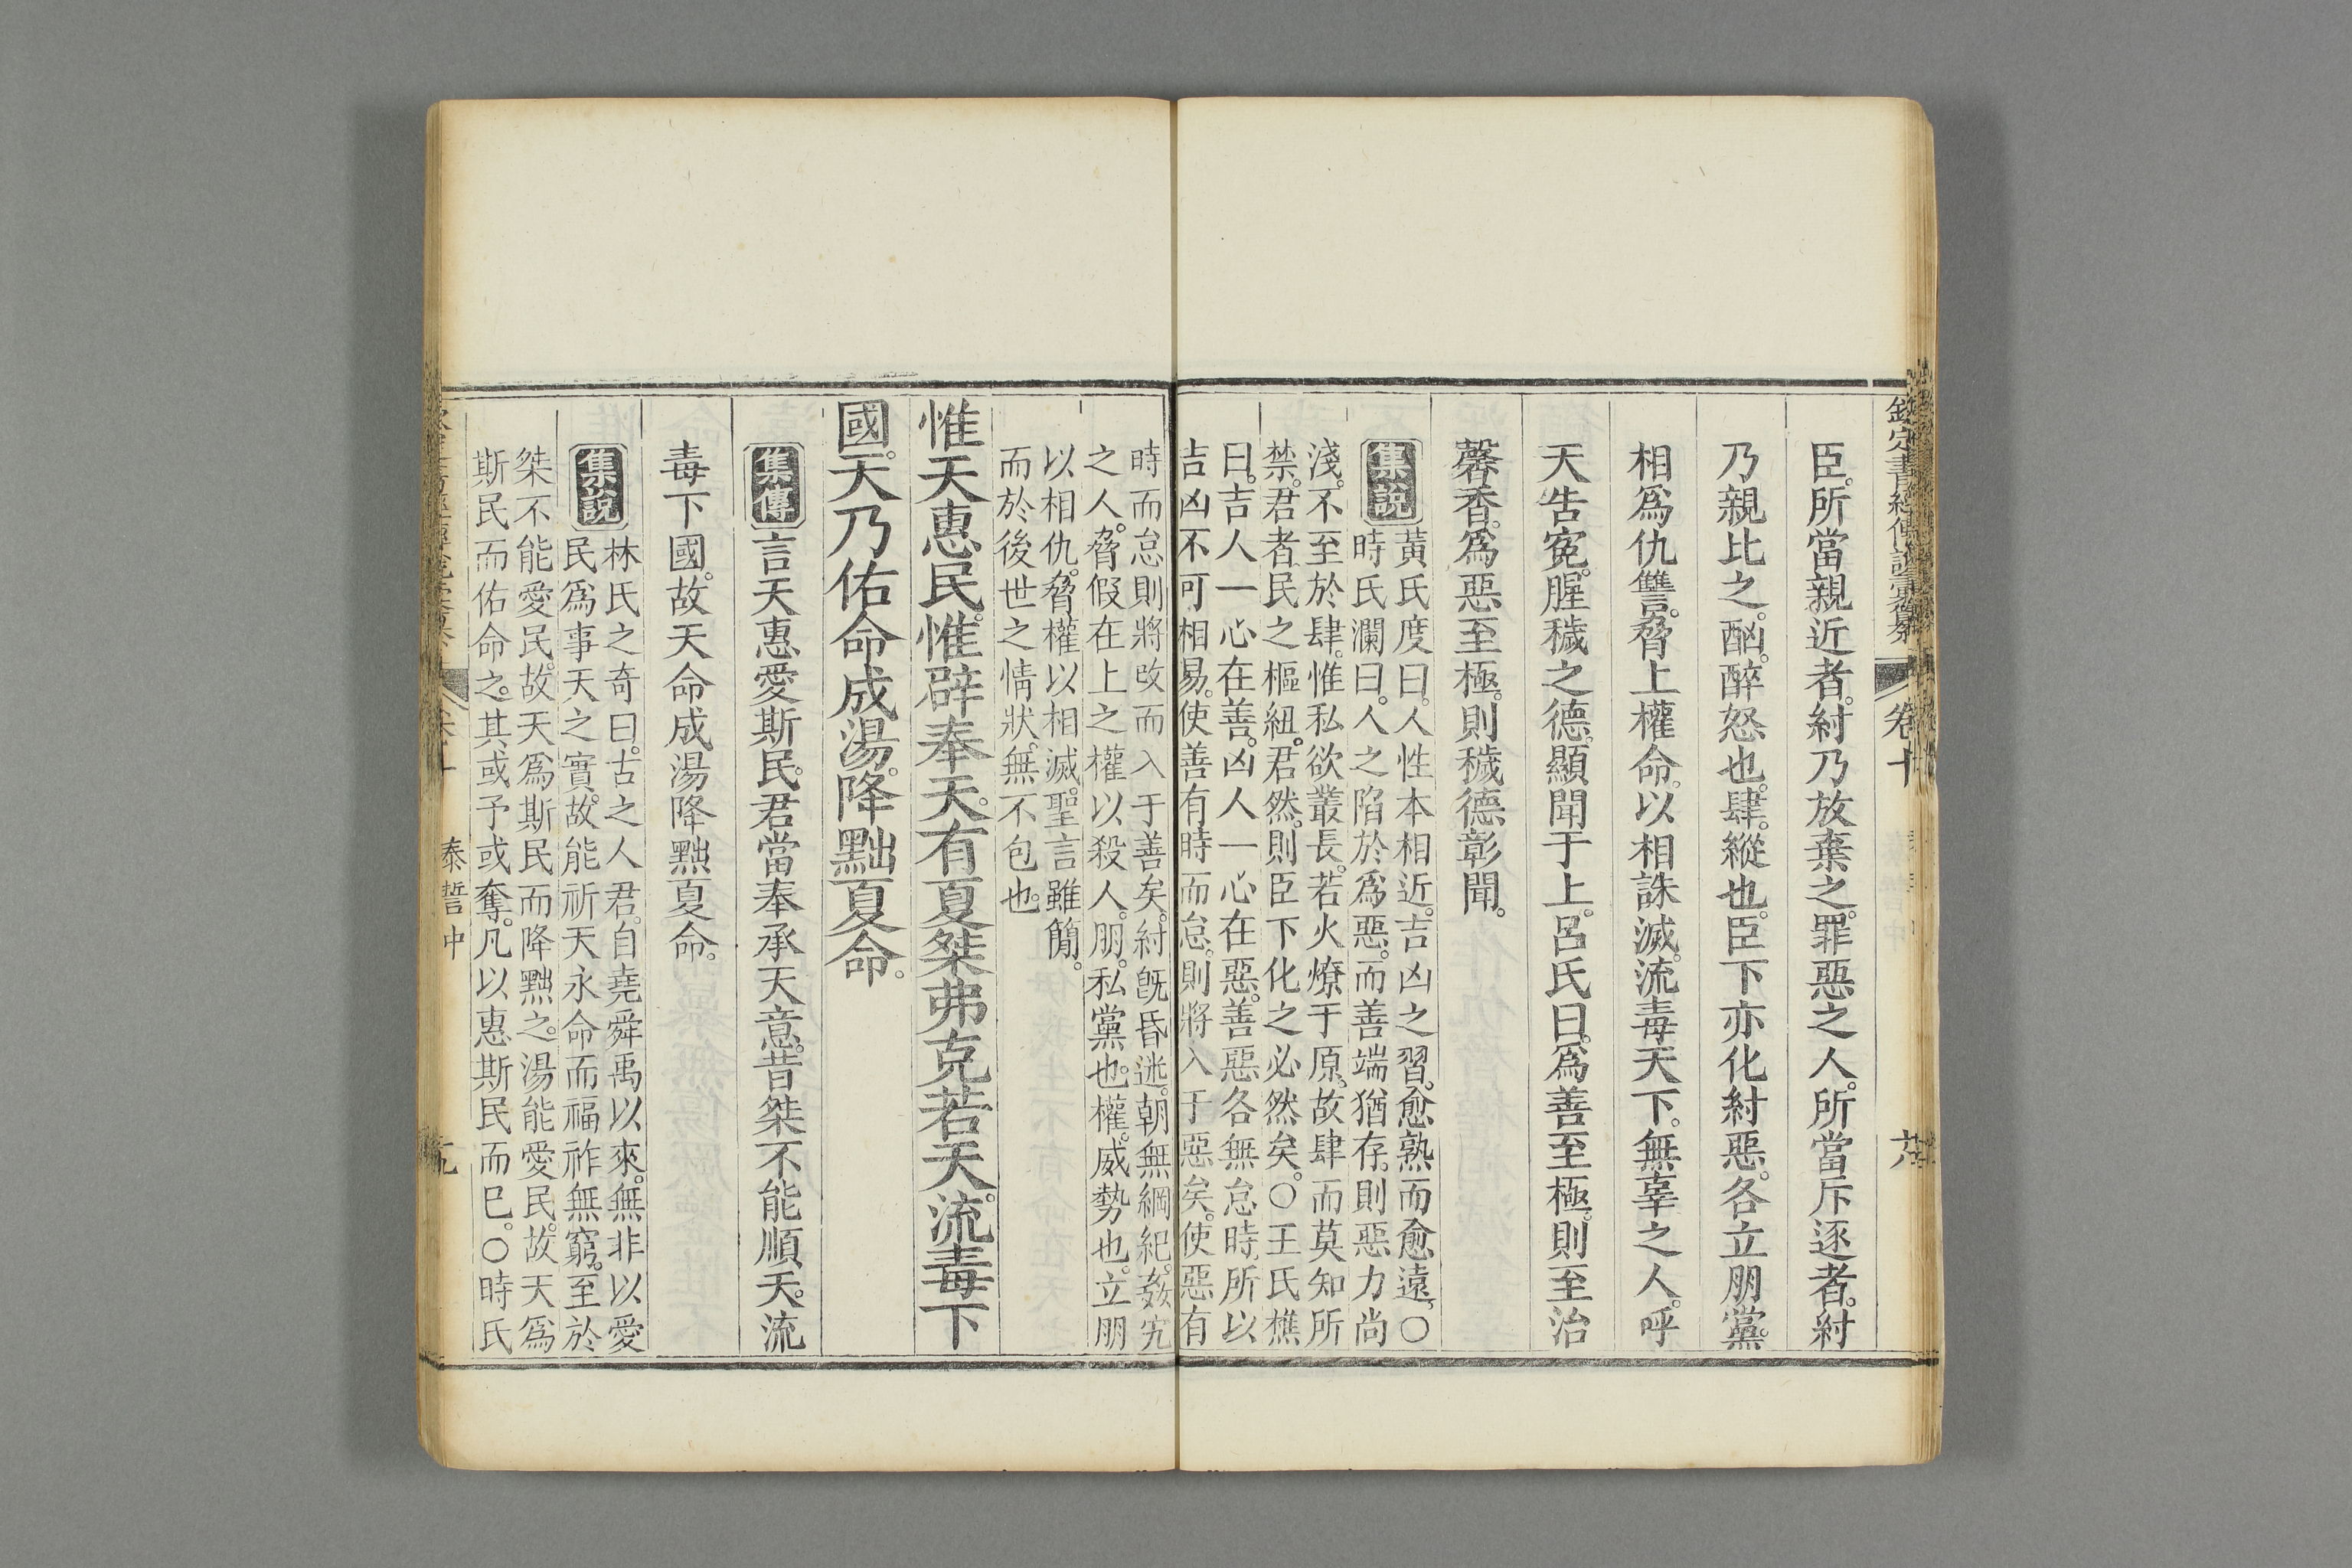 欽定書經傳說彙纂
卷十
臣。所當親近者。紂乃放棄之。罪惡之人。所當斥逐者。紂
乃親比之。酗。醉怒也。肆。縱也。臣下亦化紂惡。各立朋黨。
相爲仇讐。脅上權命。以相誅滅。流毒天下。無辜之人。呼
天告寃。腥穢之德。顯聞于上。呂氏曰。爲善至極。則至治
馨香。爲惡至極。則穢德彰聞。
集說
黃氏度曰。人性本相近。吉凶之習。愈熟而愈遠。○
時氏瀾曰。人之陷於爲惡。而善端猶存。則惡力尚
淺。不至於肆。惟私欲叢長。若火燎于原。故肆而莫知所
禁。君者。民之樞紐。君然。則臣下化之必然矣。○王氏樵
曰。吉人一心在善。凶人一心在惡。善惡各無怠時。所以
吉凶不可相易。使善有時而怠。則將入于惡矣。使惡有
時而怠則將改而入于善矣。紂旣昏迷。朝無綱紀。姦宄
之人。脅假在上之權以殺人。朋。私黨也。權。威勢也。立朋
以相仇。脅權以相滅。聖言雖簡。
而於後世之情狀。無不包也。
惟天惠民。惟辟奉天。有夏桀弗克若天。流毒下
國。天乃佑命成湯。降黜夏命。
集傳
言天惠愛斯民。君當奉承天意。昔桀不能順天。流
毒下國。故天命成湯降黜夏命。
集說
林氏之奇曰。古之人君。自堯舜禹以來。無非以愛
民爲事天之實。故能祈天永命而福祚無窮。至於
桀不能愛民。故天爲斯民而降黜之。湯能愛民。故天爲
斯民而佑命之。其或予或奪。凡以惠斯民而已。○時氏
泰誓中